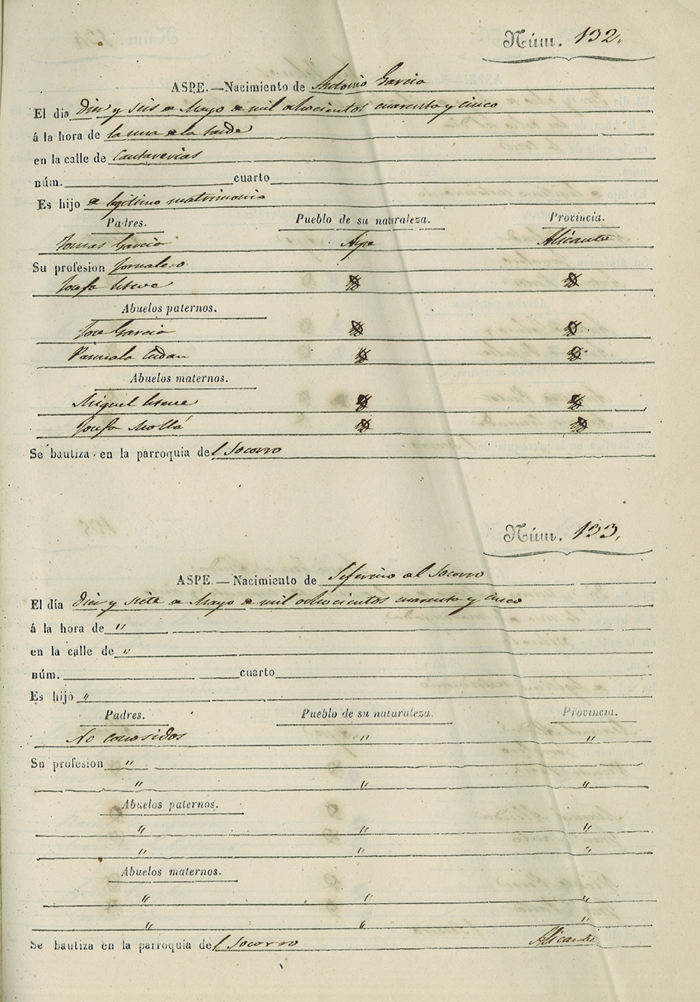 Núm. 132.
ASPE.—Nacimiento de Antonio Garcia
El dia Diez y seis de Mayo de mil ochocientos cuarenta y cinco
á la hora de la una de la tarde
en la calle de Cantarerias
núm. cuarto
Es hijo de legitimo matrimonio
Padres. Pueblo de su naturaleza. Provincia.
Tomas Garcia Aspe Alicante
Su profesion Jornalero
Josefa
Abuelos paternos.
Jose Garcia
Abuelos maternos.
Miguel
Josefa Mollá
Se bautiza en la parroquia del Socorro
Núm. 133.
ASPE.—Nacimiento de Seferino al Socorro
El día Diez y siete de Mayo de mil ochocientos cuarenta y cinco
á la hora de "
en la calle de "
núm. cuarto
Es hijo "
Padres. Pueblo de su naturaleza. Provincia.
No conosidos " "
Su profesion "
" " "
Abuelos paternos.
" " "
" " "
Abuelos maternos.
" " "
" " "
Se bautiza en la parroquia del Socorro Alicante